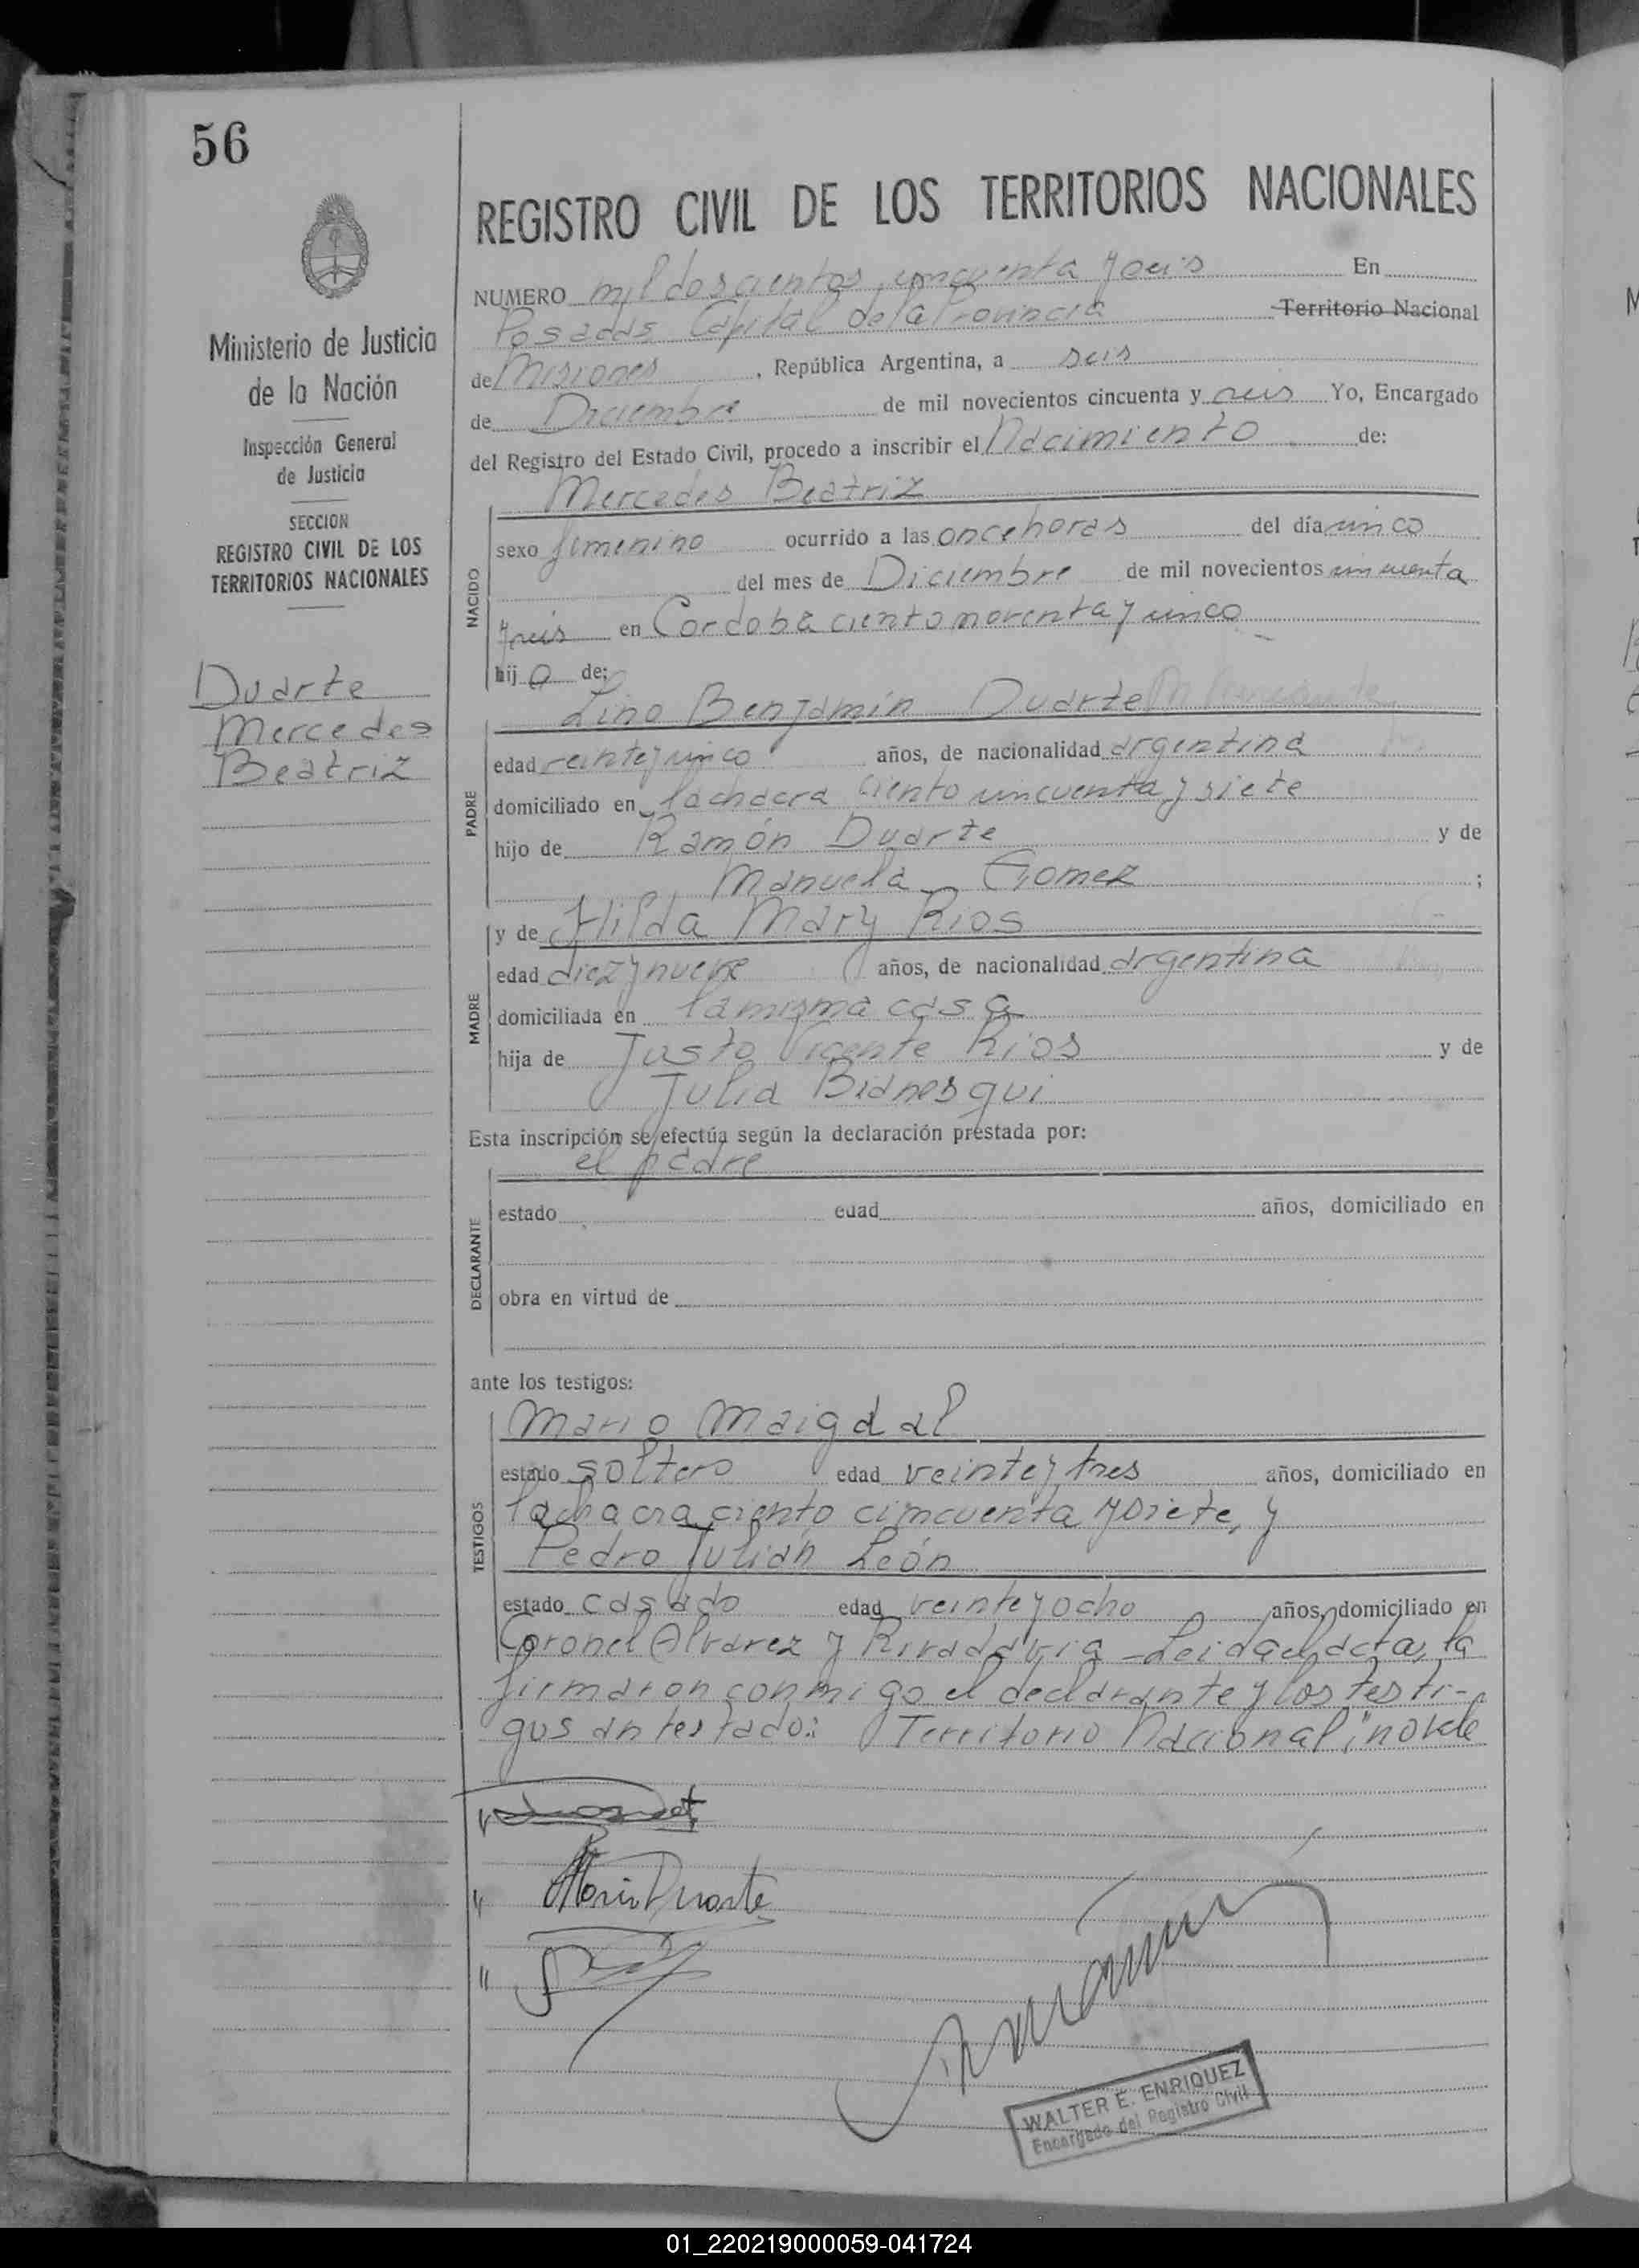 56
REGISTRO CIVIL DE LOS TERRITORIOS NACIONALES
Ministerio de Justicia
de la Nación
Inspección General
de Justicia
SECCION
REGISTRO CIVIL DE LOS
TERRITORIOS NACIONALES
Duarte
Mercedes
Beatriz
NUMERO mil doscientos cincuenta y seis En
Posadas Capital de la Provincia Territorio Nacional
de Misiones, República Argentina, a seis
de Diciembre de mil novecientos cincuenta y seis Yo, Encargado
del Registro del Estado Civil, procedo a inscribir el Nacimiento de:
Mercedes Beatriz
NACIDO
sexo femenino ocurrido a las once horas del día cinco
del mes de Diciembre de mil novecientos cincuenta
y seis en Cordoba ciento noventa y cinco
hija de:
Lino Benjamín Duarte
PADRE
edad veinte y cinco años, de nacionalidad argentina
domiciliado en la chacra ciento cincuenta y siete
hijo de Ramón Duarte y de
Manuela Gomez ;
y de Hilda Mary Rios
MADRE
edad diez y nueve años, de nacionalidad argentina
domiciliada en la misma casa
hija de Justo Vicente Rios y de
Julia Bianesqui
Esta inscripción se efectúa según la declaración prestada por:
el padre
DECLARANTE
estado edad años, domiciliado en
obra en virtud de
ante los testigos:
Mario Maigdal
TESTIGOS
estado soltero edad veinte y tres años, domiciliado en
la chacra ciento cimcuenta y siete, y
Pedro Julián León
estado casado edad veinte y ocho años, domiciliado en
Coronel Alvarez y Rivadavia - Leida el acta, la
firmaron conmigo el declarante y los testi-
gos antestado: Territorio Nacional, "no vale
Duarte
WALTER E. ENRIQUEZ
Encargado del Registro Civil
01_220219000059-041724